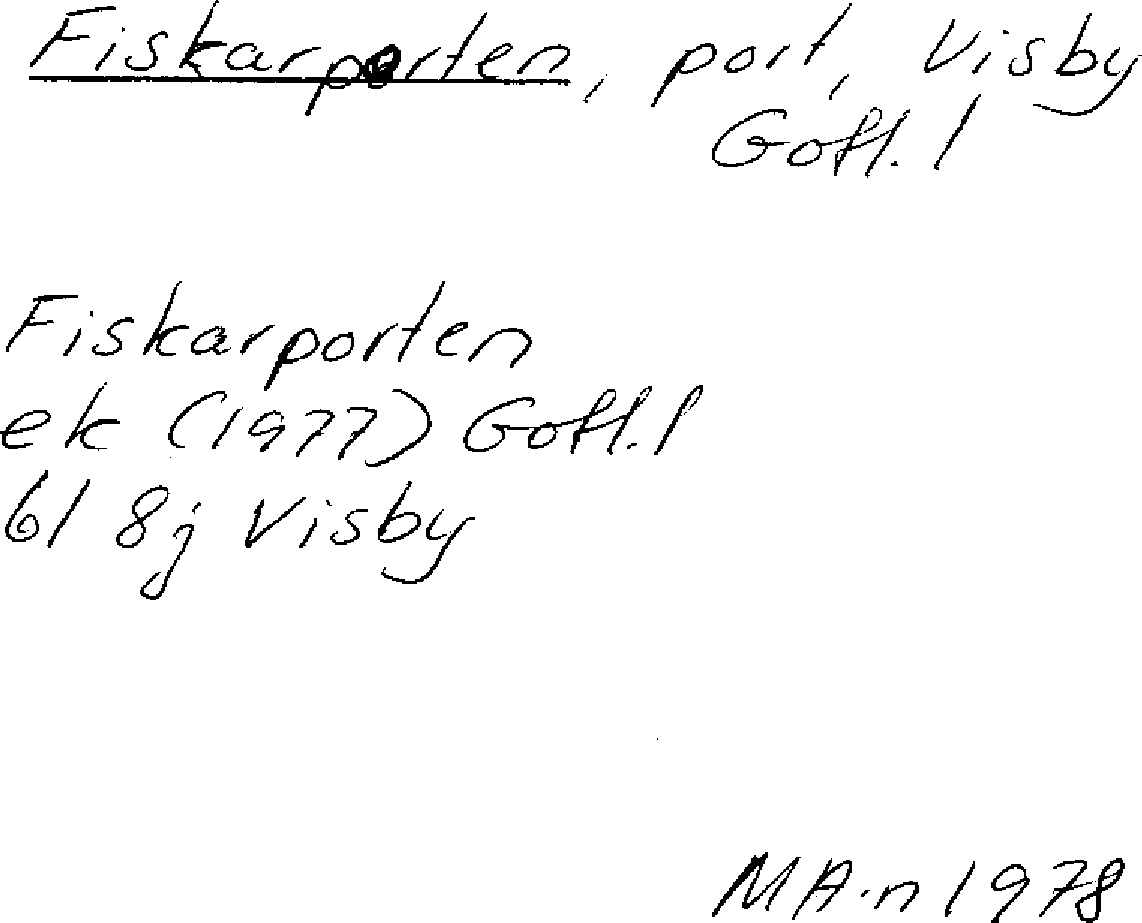 Fiskarporten, port, Visby
Gotl. l
Fiskarporten
ek (1977) Gotl. l
6I 8j Visby
MA.n 1978